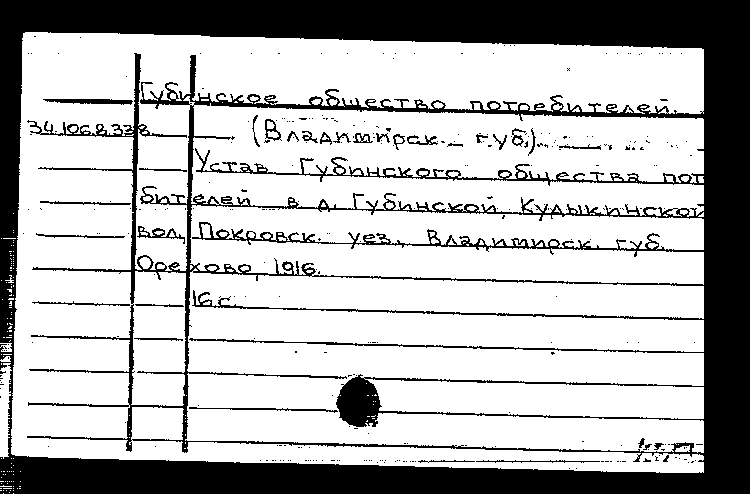 Губинское общество потребителей.
34.106.8.338 (Владимирск. губ.)
Устав Губинского общества пот
бителей в д. Губинской, Кудыкинской
вол., Покровск. уез., Владимирск. губ.
Орехово, 1916.
16 с.